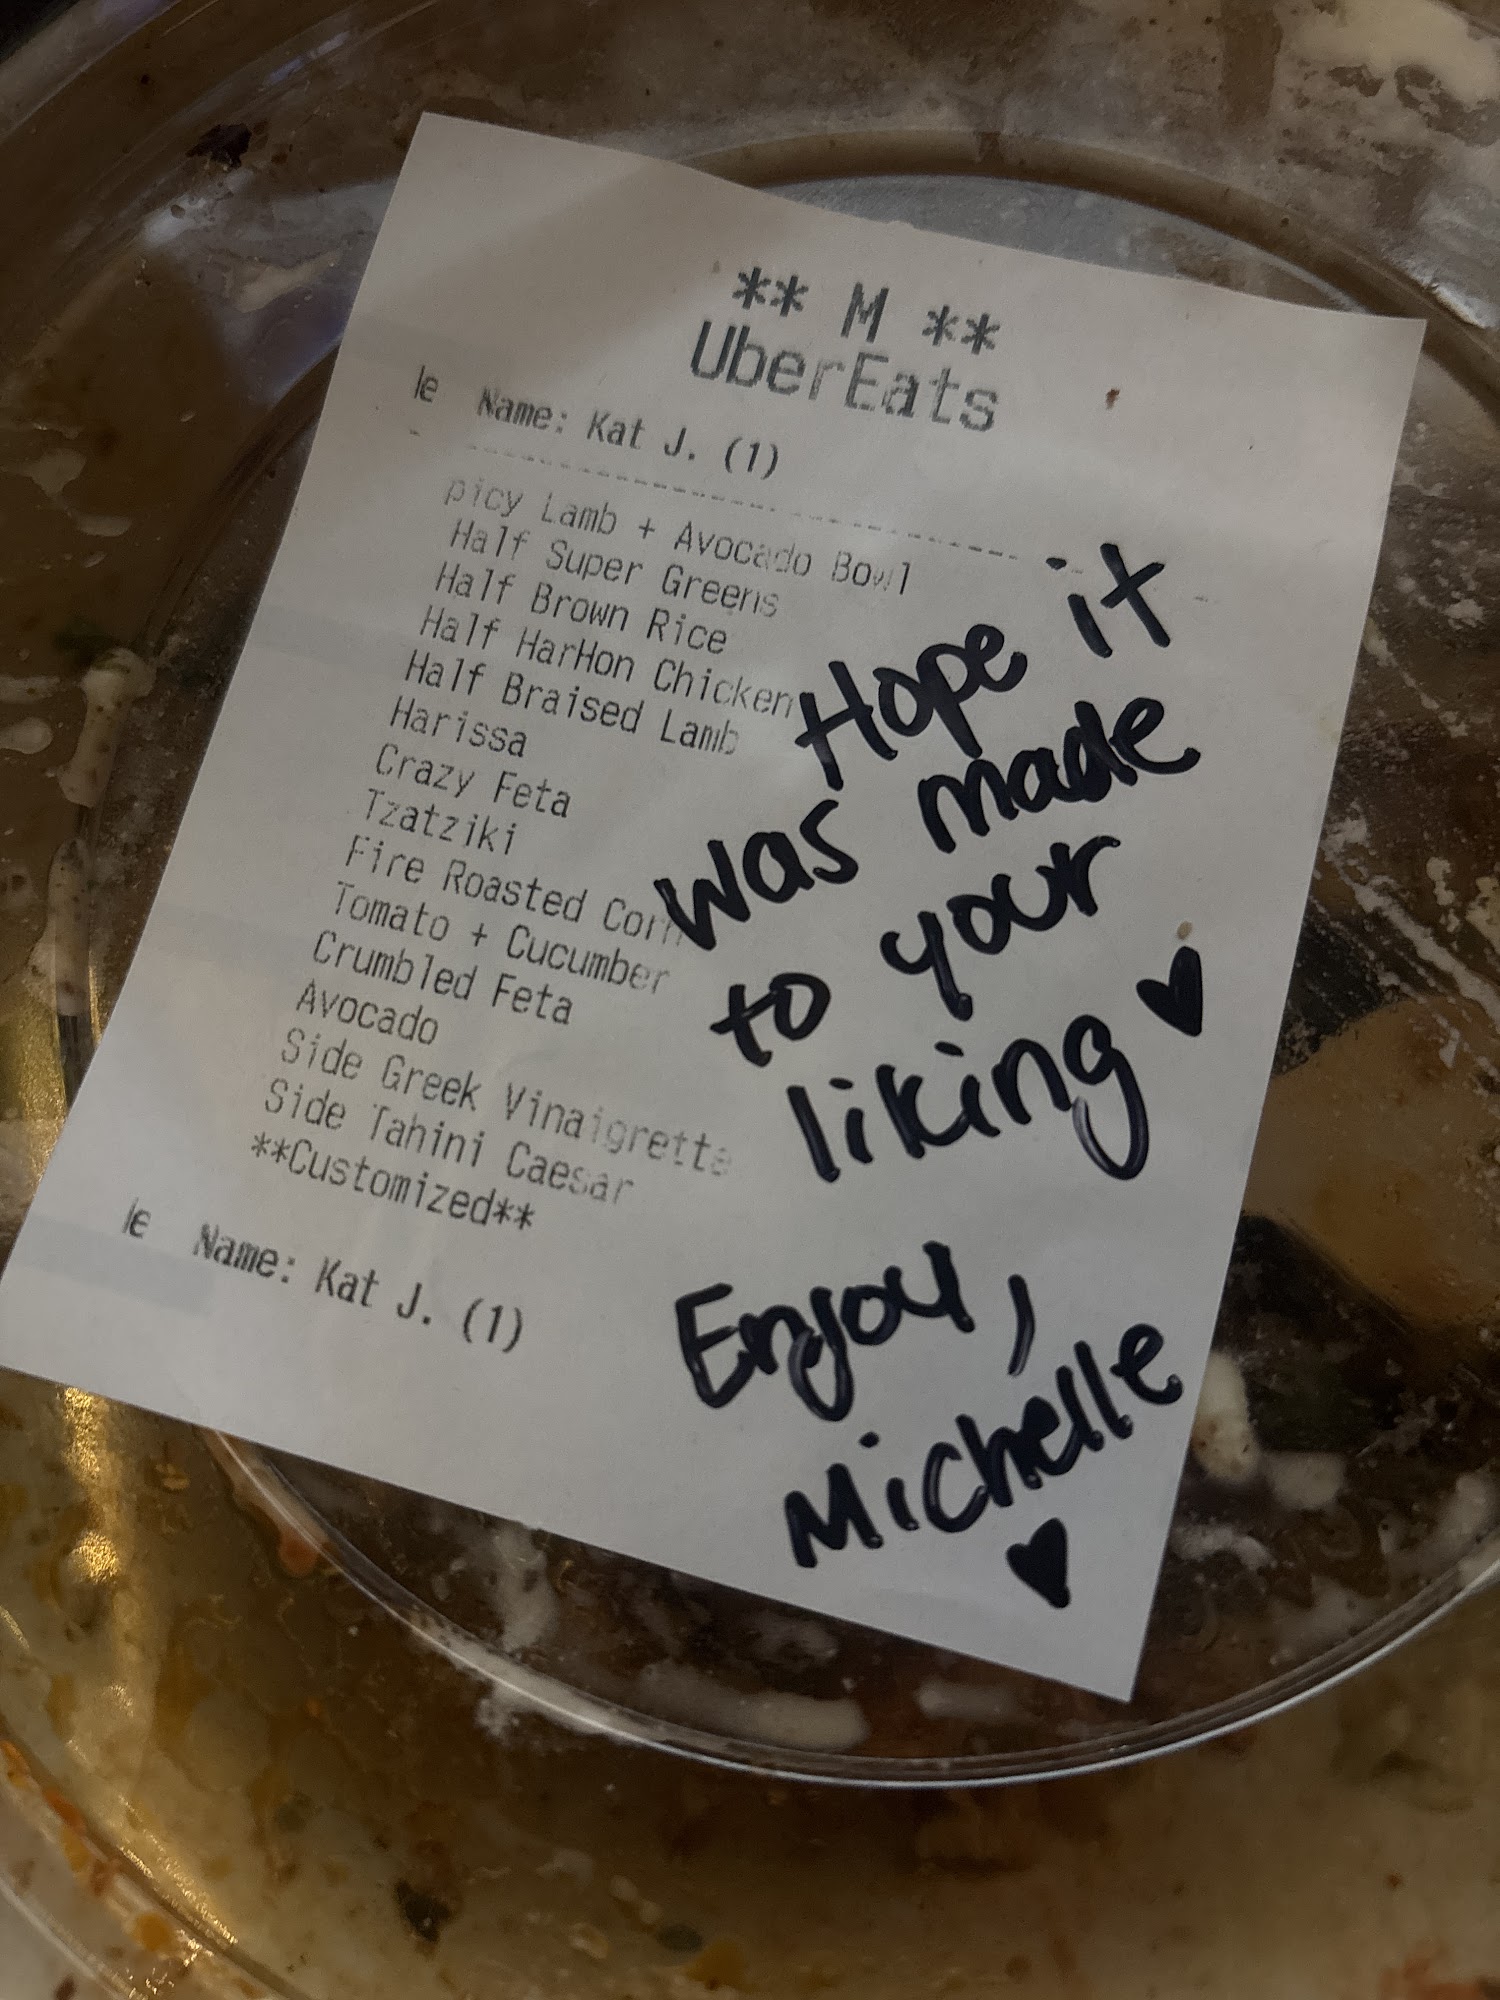 ** M **
UberEats
le Name: Kat J. (1)
picy Lamb + Avocado Bowl
Half Super Greens
Half Brown Rice
Half HarHon Chicken
Half Braised Lamb
Harissa
Crazy Feta
Tzatziki
Fire Roasted Corn
Tomato + Cucumber
Crumbled Feta
Avocado
Side Greek Vinaigrette
Side Tahini Caesar
**Customized**
le Name: Kat J. (1)
Hope it
was made
to your
liking ♥
Enjoy,
Michelle
♥